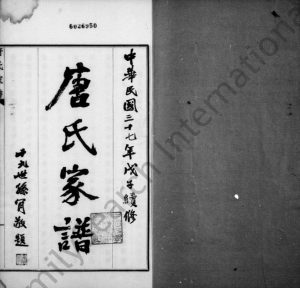 6026950
中華民國三十七年戊子續修
唐氏家譜
十九世孫肎敬題
Family Search International